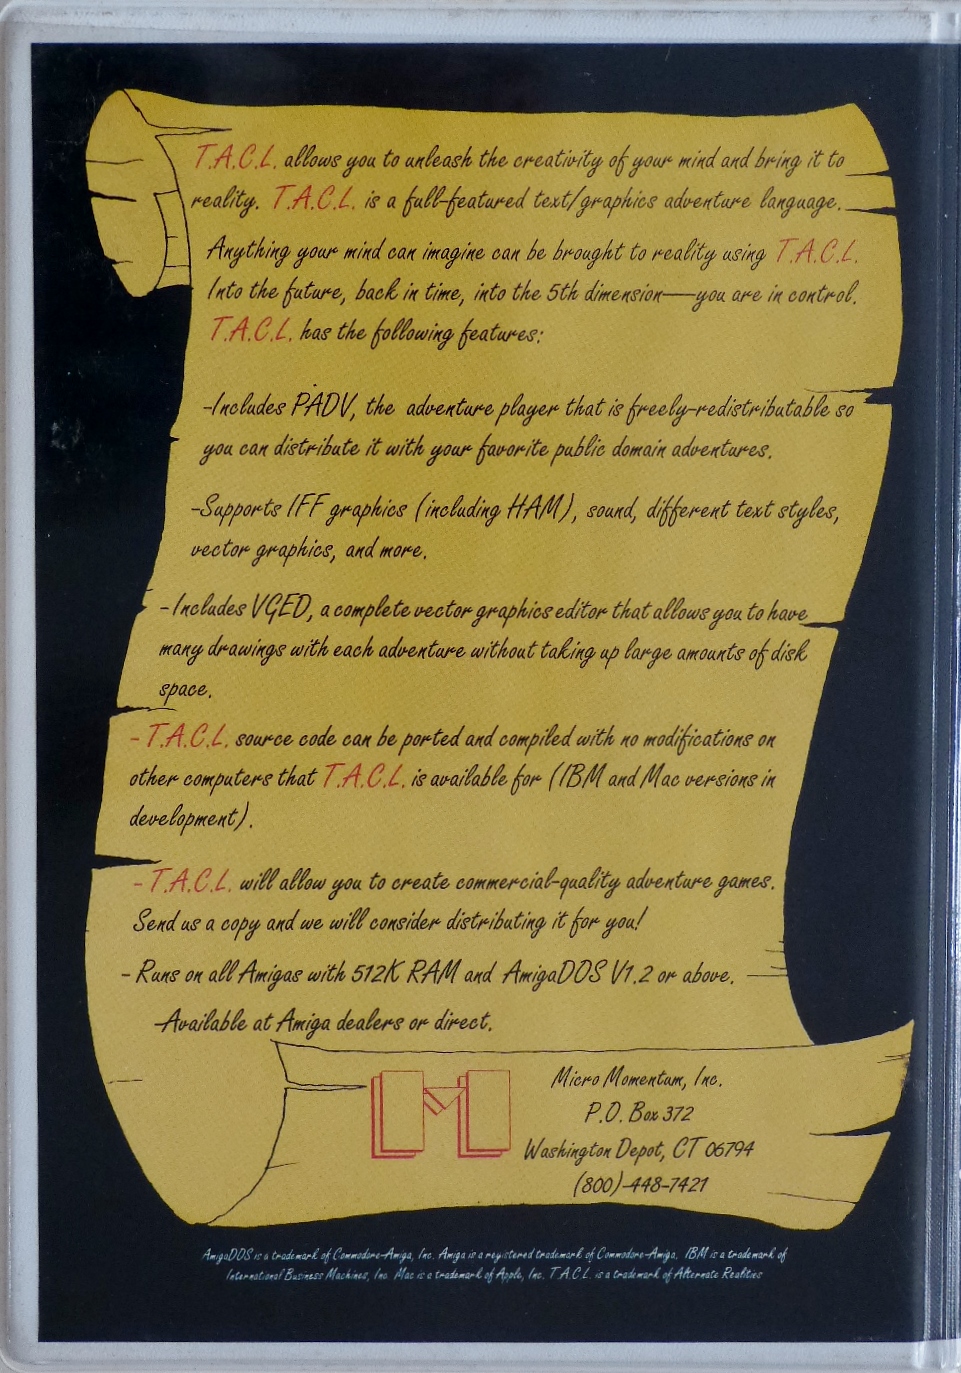 T.A.C.L. allows you to unleash the creativity of your mind and bring it to
reality. T.A.C.L. is a full-featured text/graphics adventure language.
Anything your mind can imagine can be brought to reality using T.A.C.L.
Into the future, back in time, into the 5th dimension—you are in control.
T.A.C.L. has the following features:
-Includes PADV, the adventure player that is freely-redistributable so
you can distribute it with your favorite public domain adventures.
-Supports IFF graphics (including HAM), sound, different text styles,
vector graphics, and more.
-Includes VGED, a complete vector graphics editor that allows you to have
many drawings with each adventure without taking up large amounts of disk
space.
- T.A.C.L. source code can be ported and compiled with no modifications on
other computers that T.A.C.L. is available for (IBM and Mac versions in
development).
- T.A.C.L. will allow you to create commercial-quality adventure games.
Send us a copy and we will consider distributing it for you!
- Runs on all Amigas with 512K RAM and AmigaDOS V1.2 or above.
-Available at Amiga dealers or direct.
M
Micro Momentum, Inc.
P.O. Box 372
Washington Depot, CT 06794
(800)-448-7421
AmigaDOS is a trademark of Commodore-Amiga, Inc. Amiga is a registered trademark of Commodore-Amiga. IBM is a trademark of
International Business Machines, Inc. Mac is a trademark of Apple, Inc. T.A.C.L. is a trademark of Alternate Realities